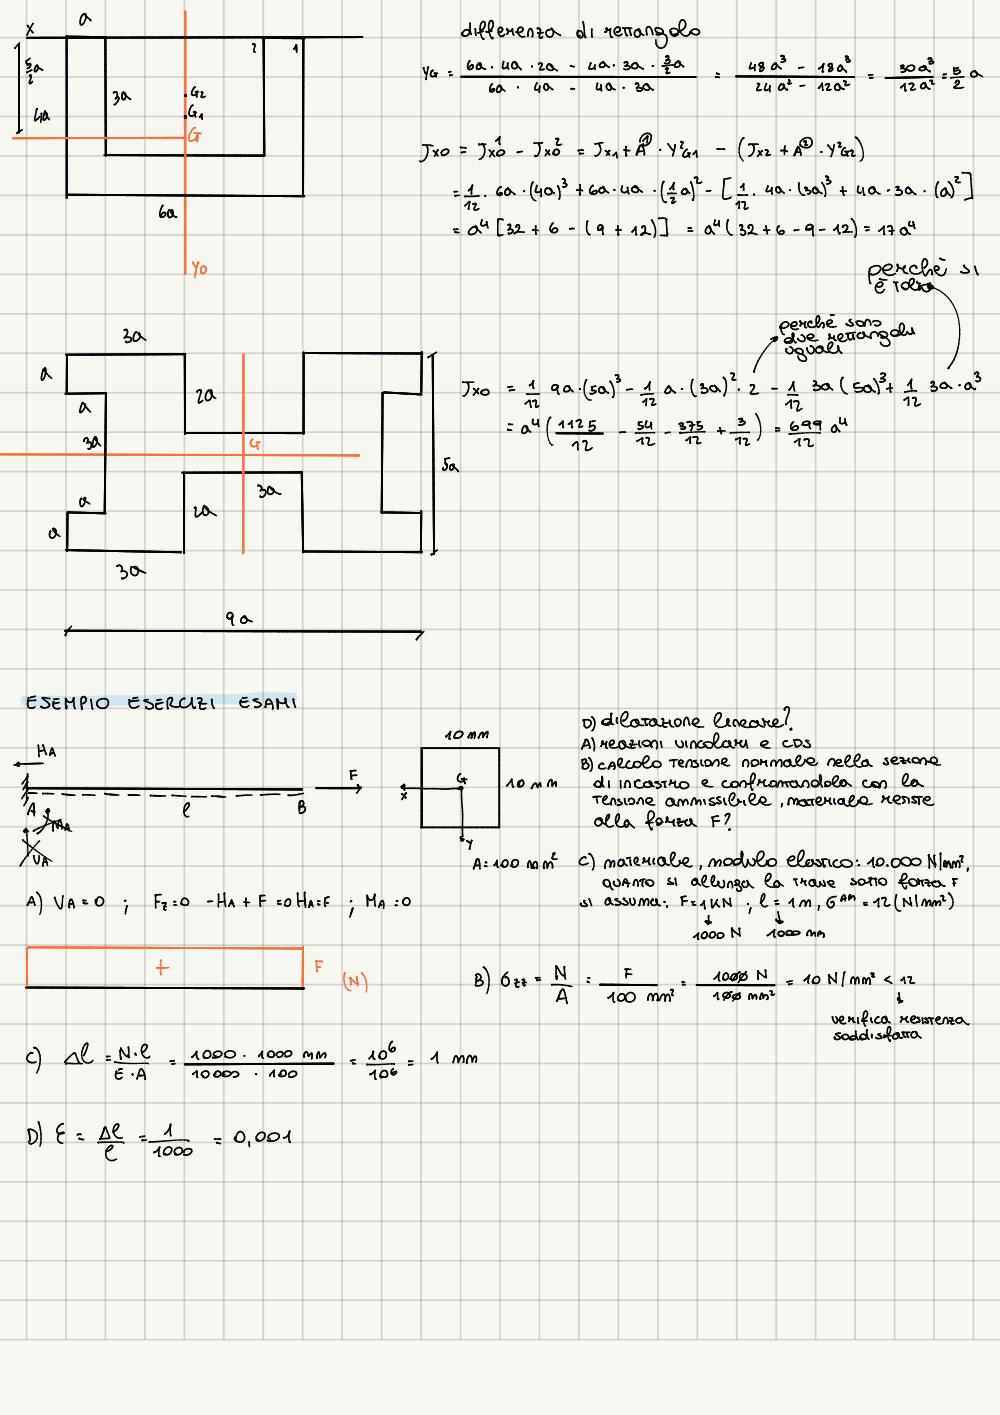 a
x
2 1
5/2 a
4a
3a
G2
G1
G
6a
Y0
differenza di rettangolo
YG = (6a · 4a · 2a - 4a · 3a · 3/2 a) / (6a · 4a - 4a · 3a) = (48a³ - 18a³) / (24a² - 12a²) = 30a³ / 12a² = 5/2 a
Jx0 = Jx0¹ - Jx0² = Jx1 + A① · Y²G1 - (Jx2 + A② · Y²G2)
= 1/12 · 6a · (4a)³ + 6a · 4a · (1/2 a)² - [1/12 · 4a · (3a)³ + 4a · 3a · (a)²]
= a⁴ [32 + 6 - (9 + 12)] = a⁴ (32 + 6 - 9 - 12) = 17a⁴
perchè si
è tolto
perchè sono
due rettangoli
uguali
Jx0 = 1/12 9a · (5a)³ - 1/12 a · (3a)² · 2 - 1/12 3a (5a)³ + 1/12 3a · a³
= a⁴ (1125/12 - 54/12 - 375/12 + 3/12) = 699/12 a⁴
3a
a
a
2a
3a
G
5a
3a
a
2a
a
3a
9a
ESEMPIO ESERCIZI ESAMI
HA
F
A
l
B
MA
VA
10 mm
G
10 mm
x
y
A = 100 mm²
D) dilatazione lineare?
A) reazioni vincolari e CDS
B) CALCOLO TENSIONE normale nella sezione
di incastro e confrontandola con la
tensione ammissibile, materiale resiste
alla forza F?
C) materiale, modulo elastico: 10.000 N/mm²,
quanto si allunga la trave sotto forza F
si assuma: F = 1KN ; l = 1m, σᴬᴹ = 12 (N/mm²)
1000 N 1000 mm
A) VA = 0 ; Fz = 0 -HA + F = 0 HA = F ; MA = 0
+
F
(N)
B) σzz = N/A = F / 100 mm² = 1000 N / 100 mm² = 10 N/mm² < 12
verifica resistenza
soddisfatta
C) Δl = N·l / E·A = 1000 · 1000 mm / 10000 · 100 = 10⁶/10⁶ = 1 mm
D) ε = Δl/l = 1/1000 = 0,001